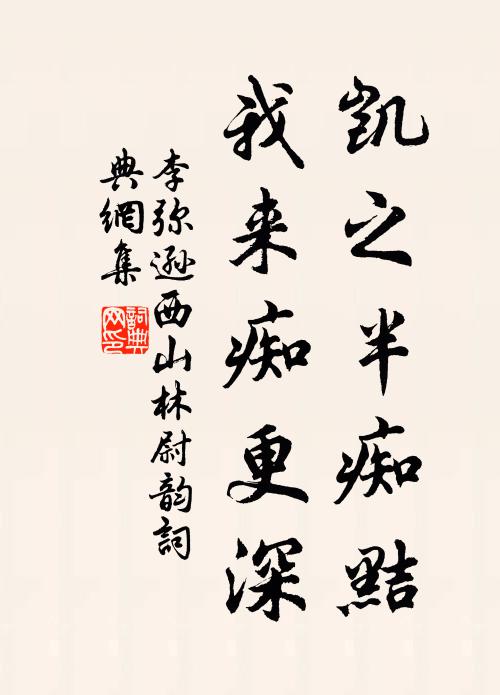 凱之半痴黠
我来痴更深
李弥遜西山林尉韵詞
典網集
詞典网印